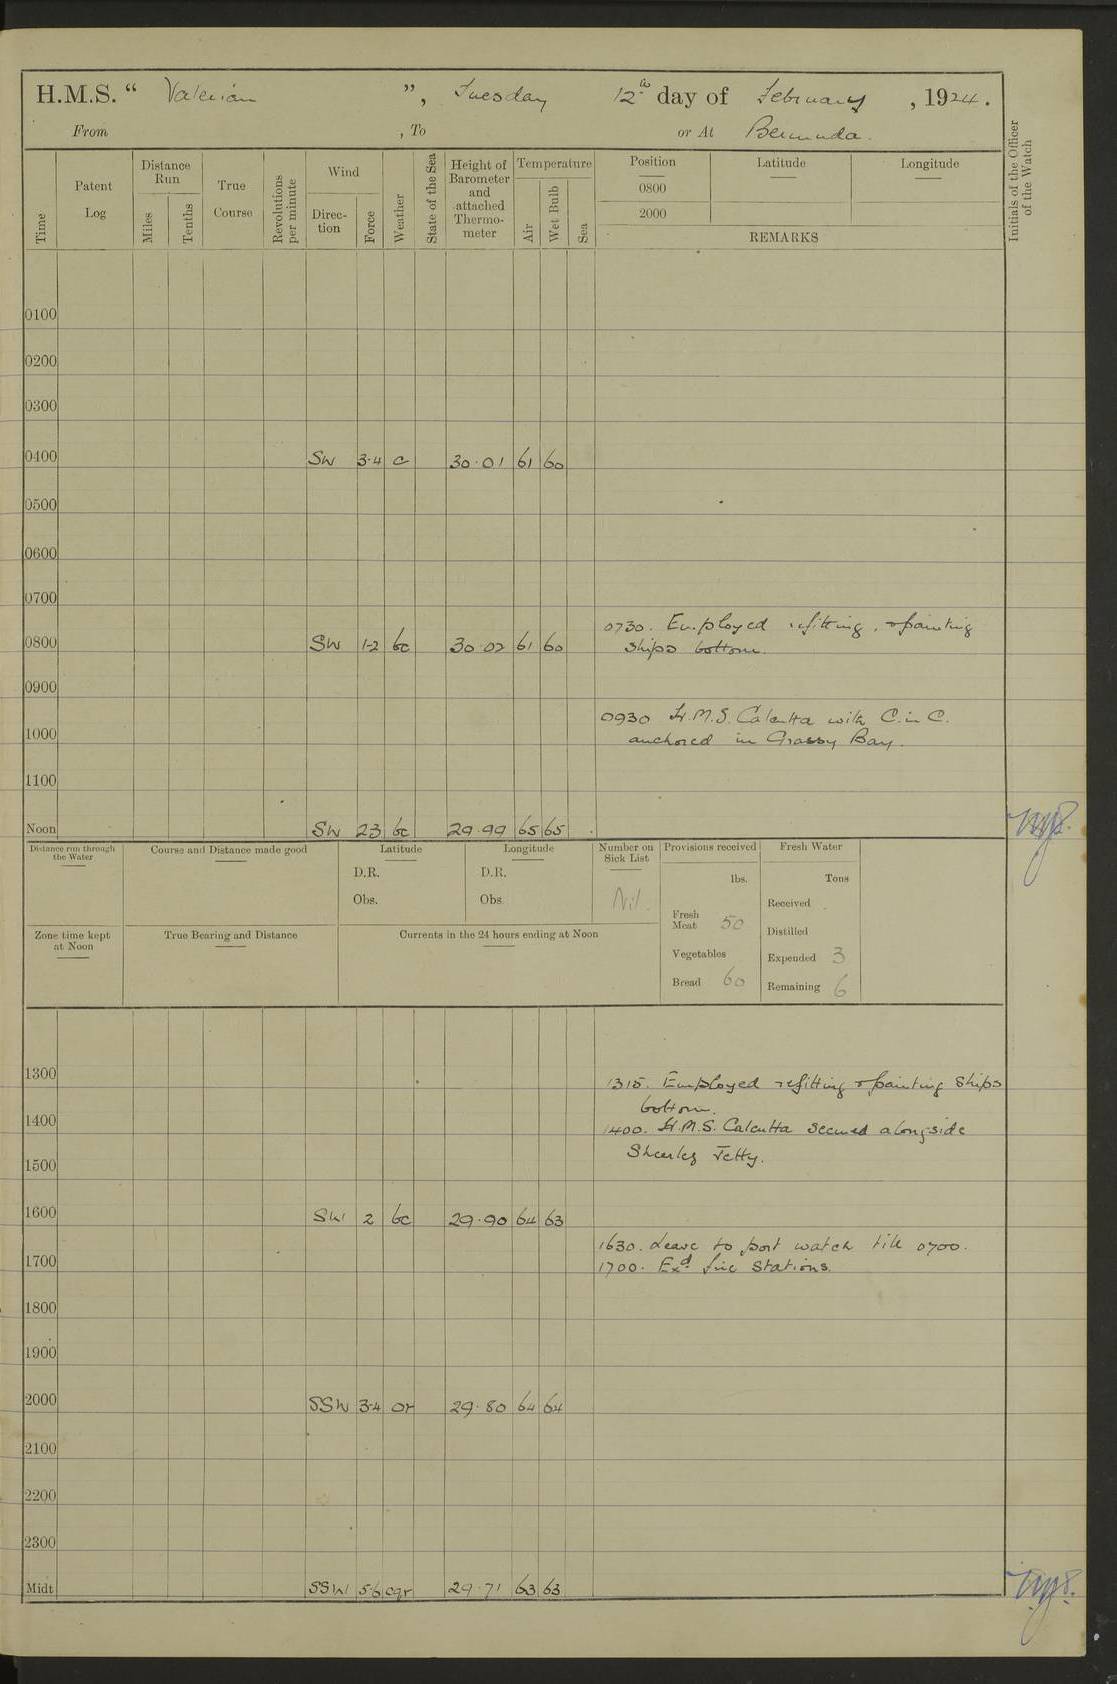 H.M.S. “ Valerian ”, Tuesday 12th day of February, 1924.
From , To or At Bermuda.
Time
Patent Log
Distance Run
Miles
Tenths
True Course
Revolutions per minute
Wind
Direc-tion
Force
Weather
State of the Sea
Height of Barometer and attached Thermo-meter
Temperature
Air
Wet Bulb
Sea
Position
Latitude
Longitude
0800
2000
REMARKS
Initials of the Officer of the Watch
0100
0200
0300
0400 SW 3-4 c 30·01 61 60
0500
0600
0700
0730. Employed refitting, & painting
0800 SW 1-2 bc 30·02 61 60 ships bottom.
0900
0930 H.M.S. Calcutta with C. in C.
1000 anchored in Grassy Bay.
1100
Noon SW 23 bc 29·99 65 65
Distance run through the Water
Course and Distance made good
Latitude
D.R.
Obs.
Longitude
D.R.
Obs.
Number on Sick List
Nil.
Provisions received
lbs.
Fresh Meat 50
Vegetables
Bread 60
Fresh Water
Tons
Received
Distilled
Expended 3
Remaining 6
Zone time kept at Noon
True Bearing and Distance
Currents in the 24 hours ending at Noon
1300
1315. Employed refitting & painting ships
bottom.
1400
1400. H.M.S. Calcutta secured alongside
Sheerleg Jetty.
1500
1600 SW 2 bc 29·90 64 63
1630. Leave to port watch till 0700.
1700
1700. Exd. fire stations.
1800
1900
2000 SSW 3-4 or 29·80 64 64
2100
2200
2300
Midt SSW 5-6 cqr 29·71 63 63